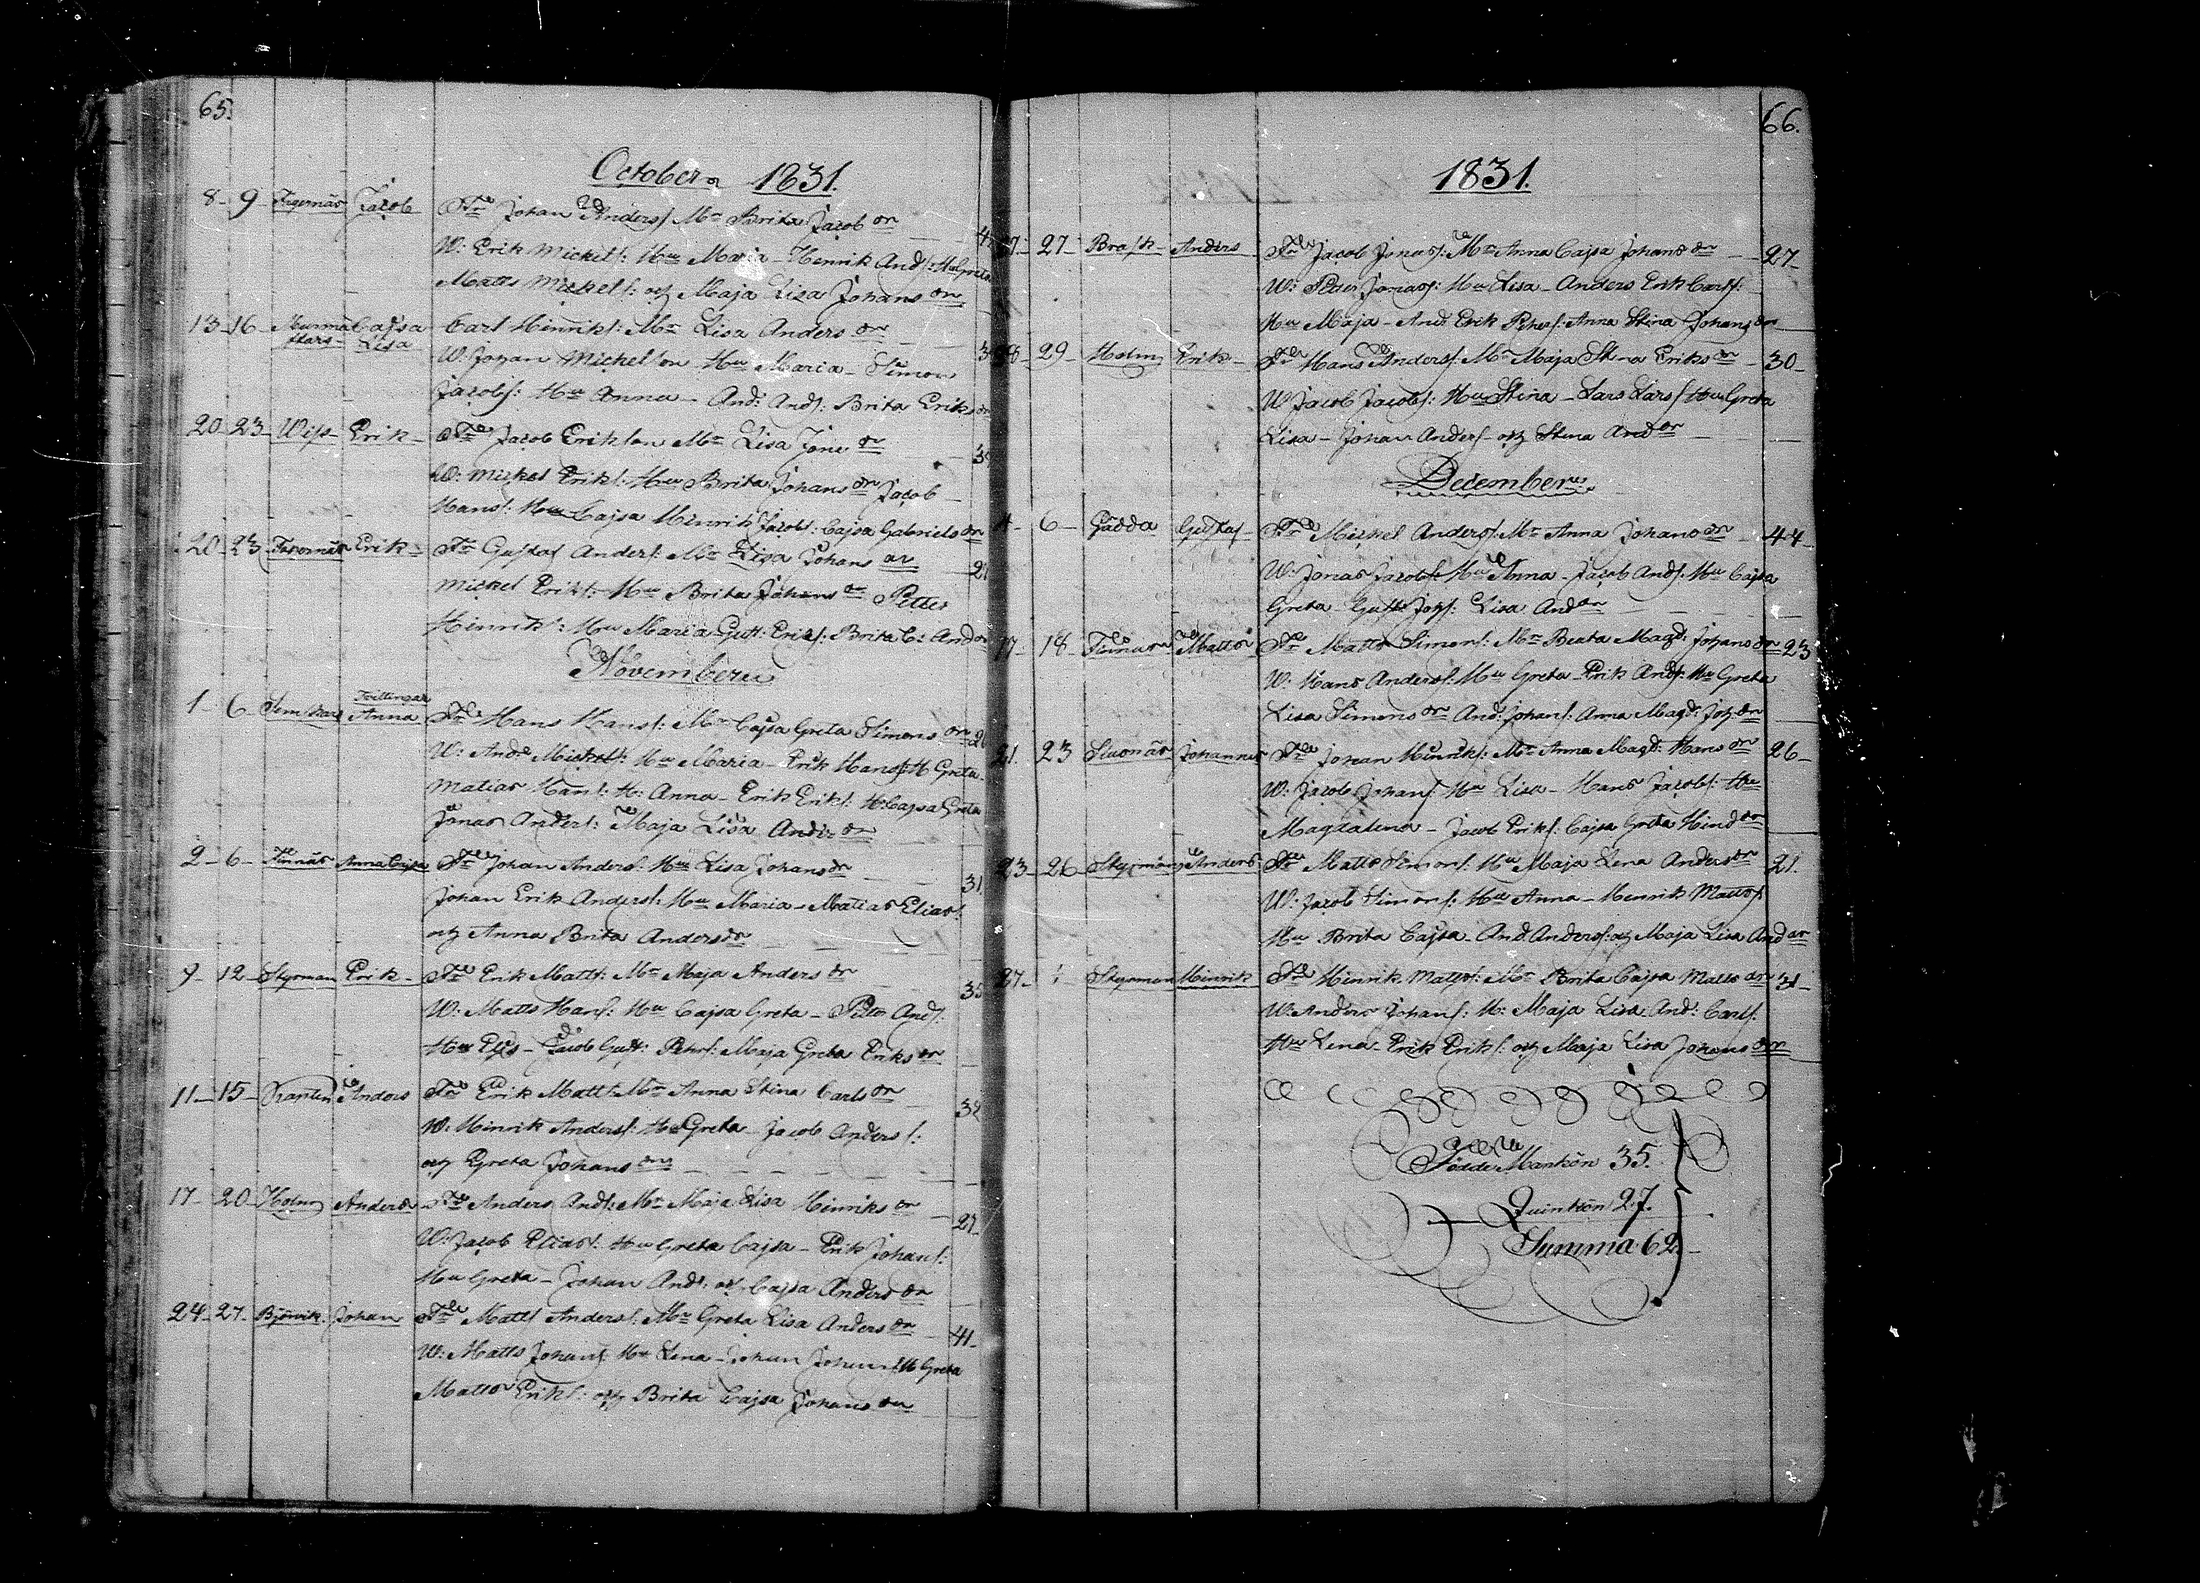 65.
October 1831.
8 - 9 Jacob Johan Anders: Mr Brita Jacob dr
W: Erik Mickels: Hu Maria - Henrik And: Hu Greta
Matts Mickels: och Maja Lisa Johans dr
13 - 16 Cajsa Carl Hinriks: Mr Lisa Anders dr
Lisa W: Johan Mickelson Hu Maria - Simon
Jacobs: Hu Anna - And: And: Brita Eriks dr
20 - 23 Erik - Jacob Erikson Mr Lisa dr
W: Mickel Eriks: Hu Brita Johans dr Jacob
Hans: Hu Cajsa Hinrik Jacobs: Cajsa Gabriels dr
20 - 23 Erik - Gustaf Anders: Mr Lisa Johans dr
Mickel Eriks: Hu Brita Johans dr Petter
Hinriks: Hu Maria Gust: Eriks: Brita C: And dr
November
Tvillingar
1 - 6 Anna Hans Hans: Mr Cajsa Greta Simons dr
W: And: Mickels: Hu Maria - Erik Hans: H Greta
Matias Hans: H: Anna - Erik Eriks: H: Cajsa Greta
Jonas Anders: Maja Lisa And: dr
2 - 6 - Finnäs Anna Cajsa Johan Anders: Lisa Johans dr 31
Johan Erik Anders: Hu Maria - Matias Elias:
och Anna Brita Anders dr
9 - 12 - Styrman Erik - Erik Matts: Mr Maja Anders dr 35
W: Matts Hans: Hu Cajsa Greta - And:
Hu - Jacob Gust: Peters: Maja Greta Eriks dr
11 - 15 - Anders Erik Matts: Mr Anna Stina Carls dr 32
W: Hinrik Anders: Hu Greta - Jacob Anders:
och Greta Johans dr
17 - 20 - Holm Anders Anders And: Mr Maja Lisa Hinriks dr 27
W: Jacob Elias: Hu Greta Cajsa - Erik Johans:
Hu Greta - Johan And: och Cajsa Anders dr
24 - 27 - Björvik Johan Matts Anders: Mr Greta Lisa Anders dr 41 -
W: Matts Johans: Hu Lena - Johan Johans: H Greta
Matts Eriks: och Brita Cajsa Johans dr
66.
1831.
27 - 27 - Brask Anders Jacob Jonas: Mr Anna Cajsa Johans dr 27 -
W: Jonas: Hu Lisa - Anders Erik Carls:
Hu Maja - And: Erik Peters: Anna Stina Johans dr
28 - 29 - Holm Erik - Hans Anders: Mr Maja Stina Eriks dr 30 -
W: Jacob Jacobs: Hu Stina - Lars Lars: Hu Greta
Lisa - Johan Anders: och Stina And dr
December
4 - 6 - Gädda Gustaf - Mickel Anders: Mr Anna Johans dr 44 -
W: Jonas Jacobs: Hu Anna - Jacob And: Hu Cajsa
Greta - Gust: Joh: Lisa And dr
17 - 18 - Matts Matts Simons: Mr Beata Magd: Johans dr 23
W: Hans Anders: Hu Greta - Erik And: Hu Greta
Lisa Simons dr And: Johans: Anna Magd: Joh: dr
21 23 Johannes Johan Hinriks: Mr Anna Magd: Hans dr 26 -
W: Jacob Johans: Hu Lisa - Hans Jacobs: Hu
Magdalena - Jacob Eriks: Cajsa Greta Hind dr
23 - 26 - Anders Matts Simons: Maja Lena Anders dr 21.
W: Jacob Simons: Hu Anna - Henrik Matts:
Hu Brita Cajsa - And: Anders: och Maja Lisa And dr
27 - Styrman Hinrik Hinrik Matts: Mr Brita Cajsa Matts dr 31 -
W: Anders Johans: H: Maja Lisa And: Carls:
Hu Lena - Erik Eriks: och Maja Lisa Johans dr
Födde Mankön 35.
Quinkön 27.
Summa 62 -